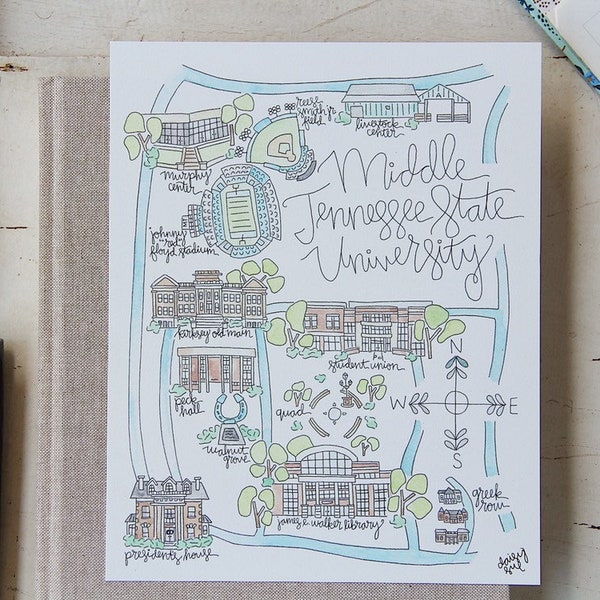 reese
smith jr
field
livestock
center
A
murphy
center
Middle
Tennessee State
University
johnny
"red"
floyd stadium
kirksey old main
student union
peck
hall
quad
walnut
grove
N
W E
S
james e. walker library
greek
row
presidents house
daisy